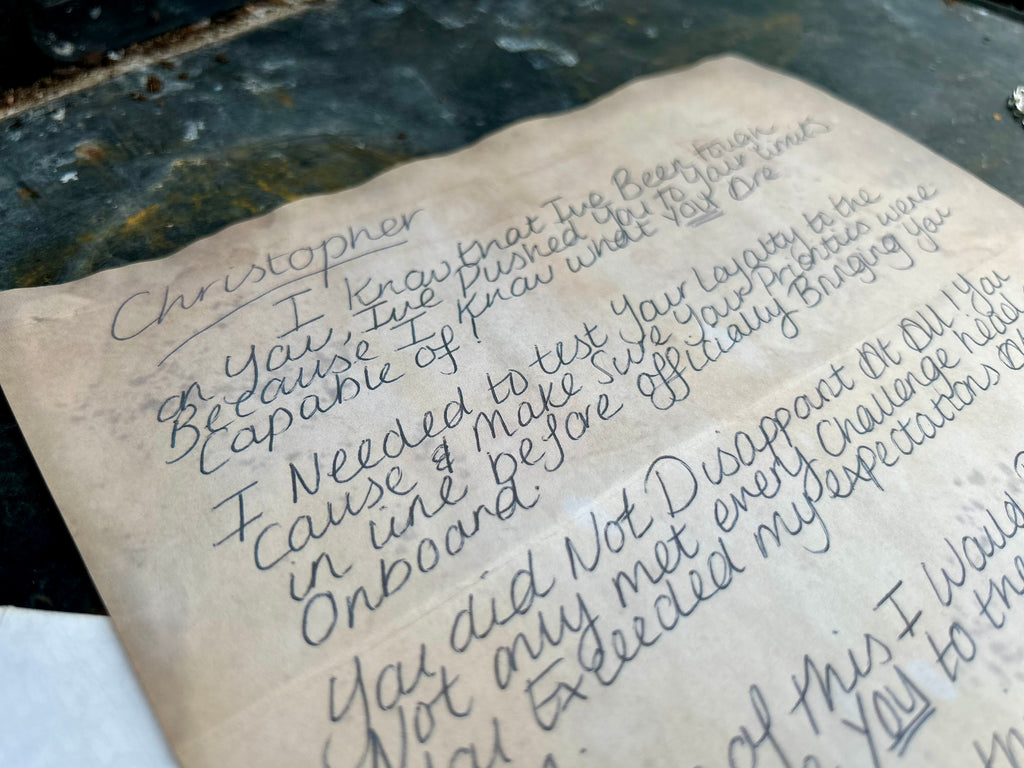 Christopher
I Know that I've Been tough
on you, I've Pushed you to your limits
Because I Know what you are
Capable of!
I Needed to test your Loyalty to the
Cause & Make Sure your Priorities were
in line before officially Bringing you
Onboard.
You did Not Disappoint at all! You
Not only met every Challenge head
Exceeded my expectations
of this I would
you to the